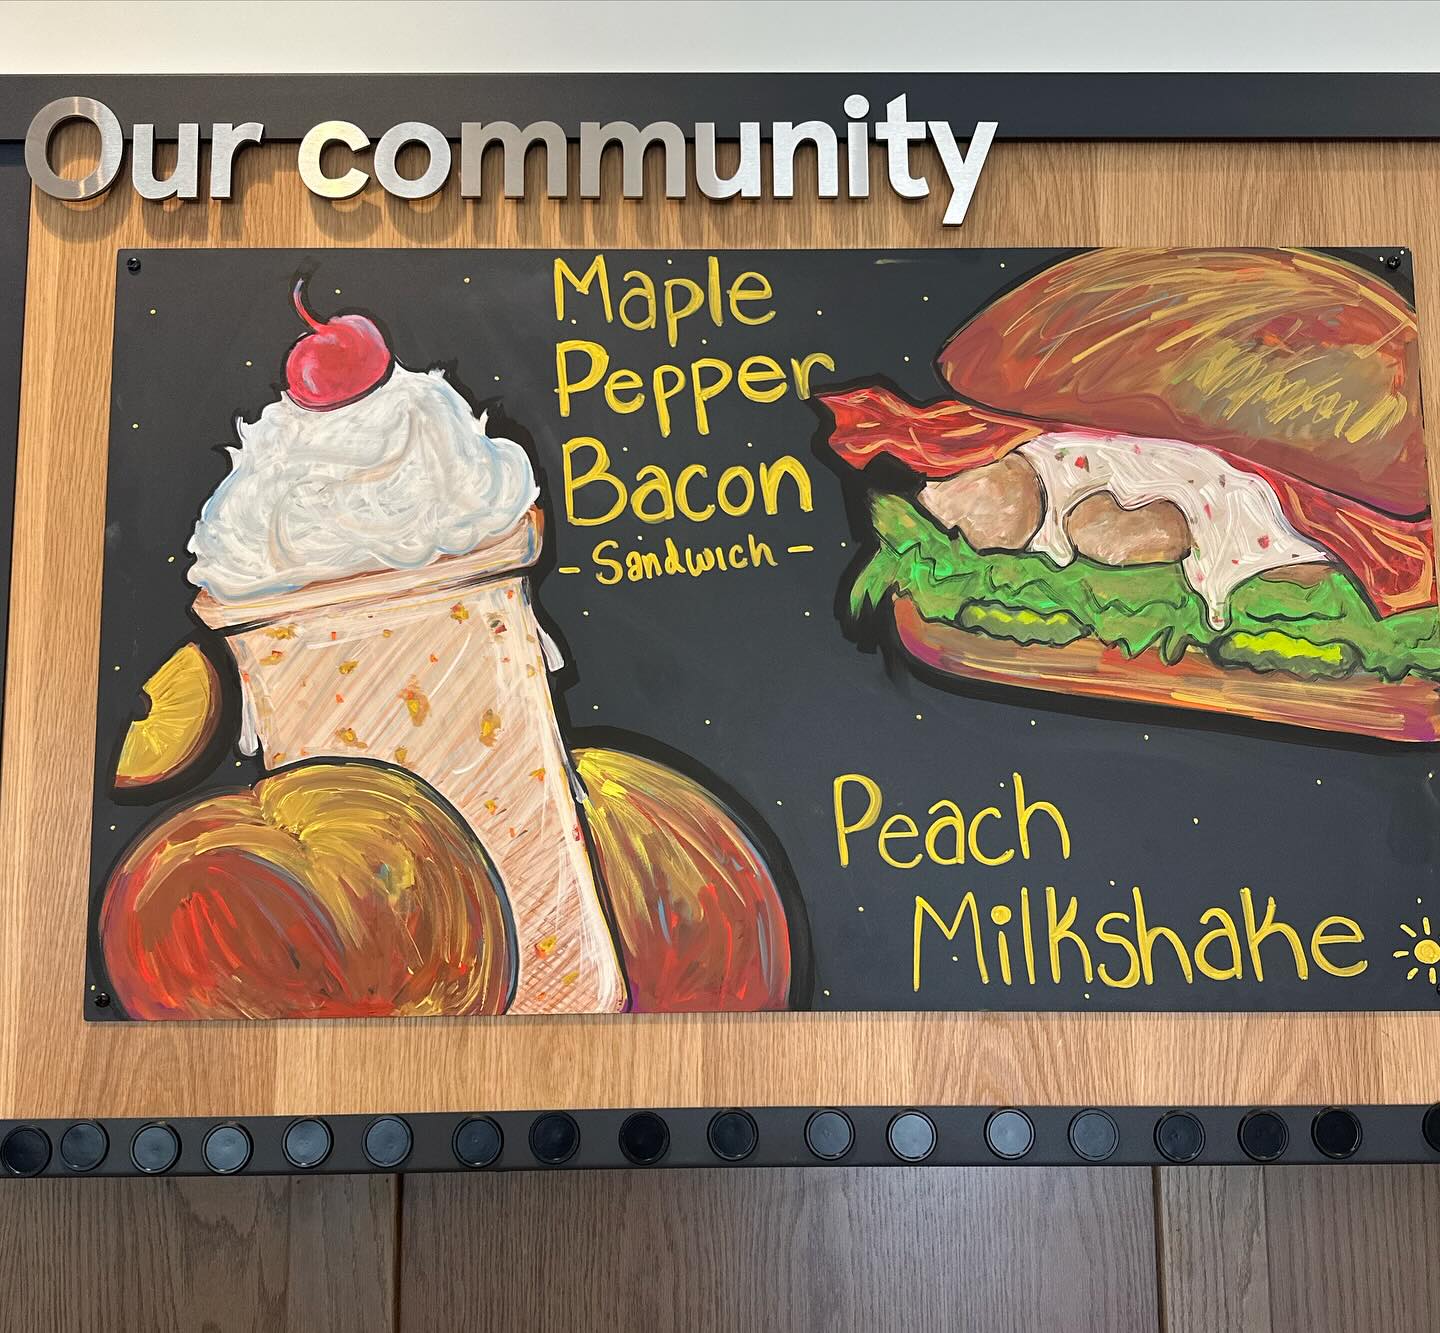 Our community
Maple
Pepper
Bacon
- Sandwich -
Peach
Milkshake